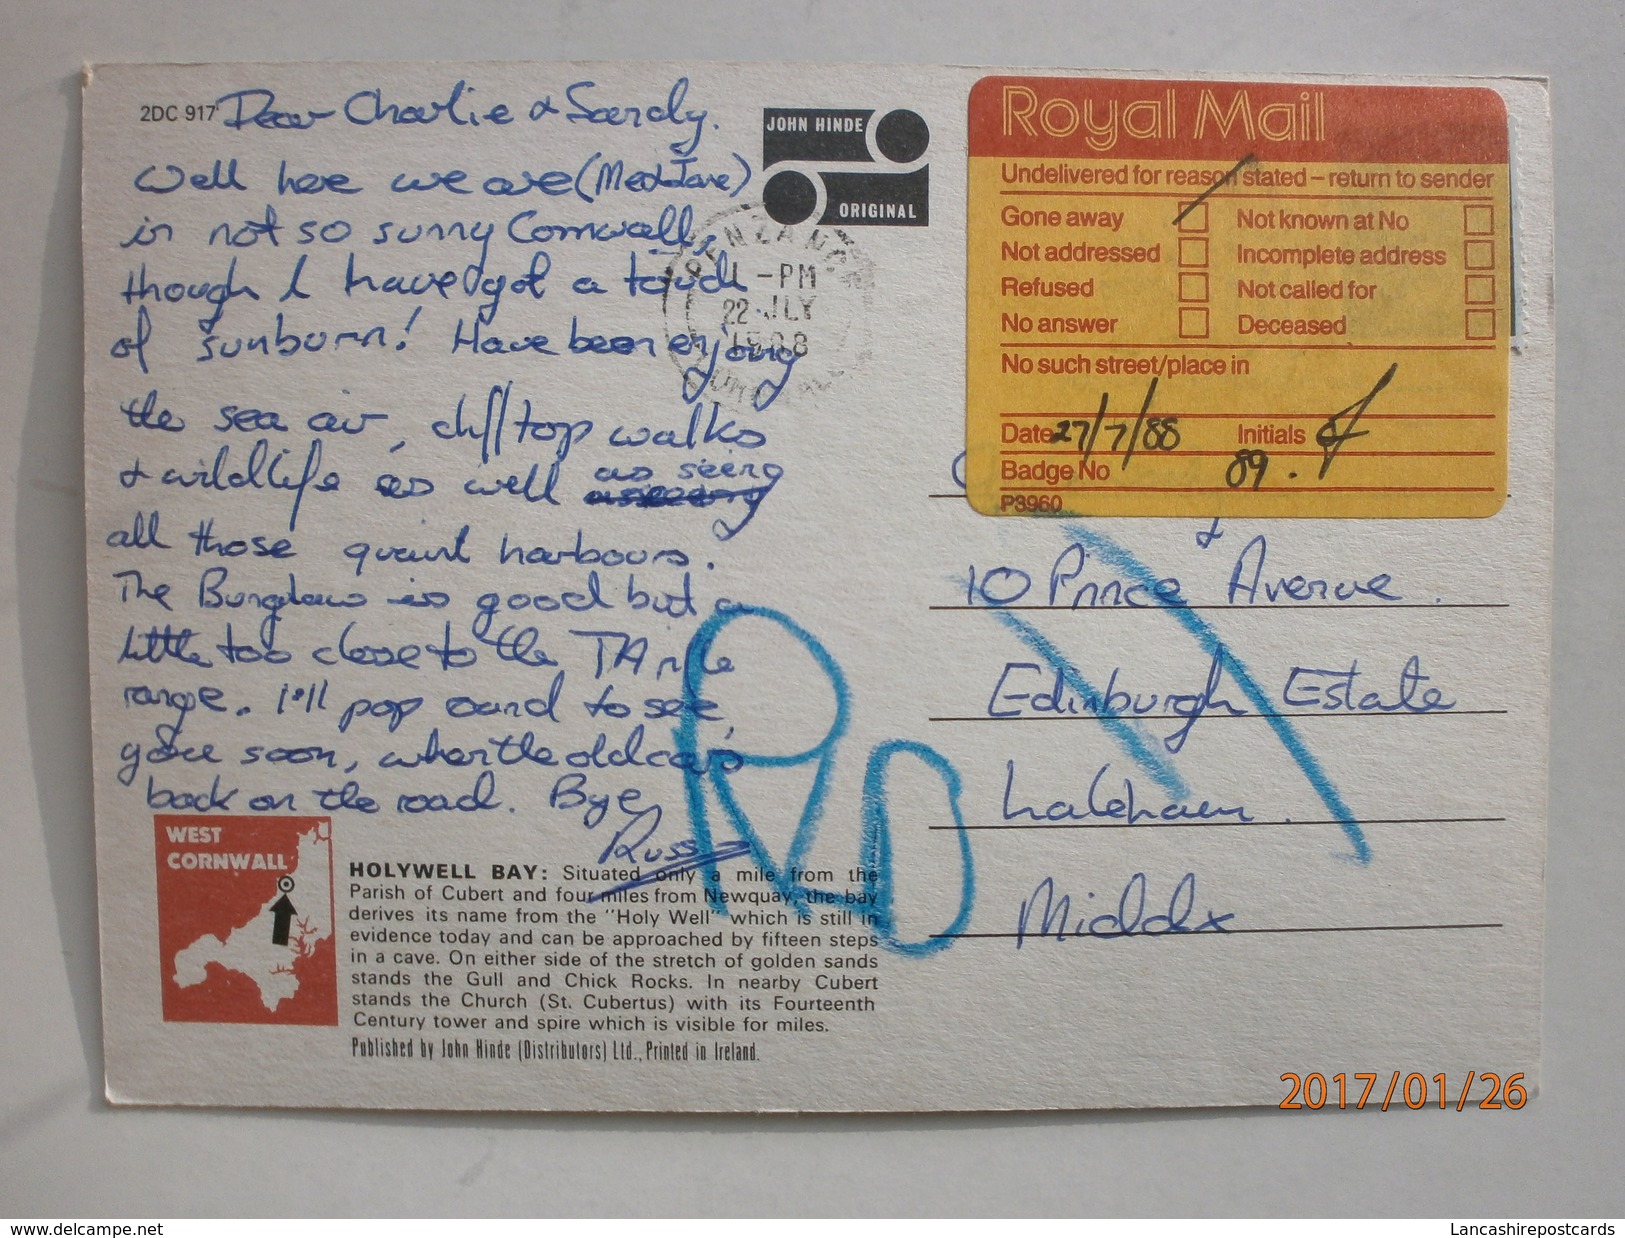 2DC 917
Dear Charlie & Sandy.
Well here we are (Me & Jane)
in not so sunny Cornwall,
though I have got a touch
of sunburn! Have been enjoying
the sea air, cliff top walks
& wildlife as well as seeing
all those quaint harbours.
The Bungalow is good but a
little too close to the TA rifle
range. I'll pop round to see
you soon, when the old car's
back on the road. Bye,
Russ
JOHN HINDE
ORIGINAL
PENZANCE
-PM
22 JLY
1988
CORNWALL
Royal Mail
Undelivered for reason stated – return to sender
Gone away
Not known at No
Not addressed
Incomplete address
Refused
Not called for
No answer
Deceased
No such street/place in
Date 27/7/88
Initials
Badge No 89.
P3960
&
10 Prince Avenue.
Edinburgh Estate
Laleham.
Middx
WEST
CORNWALL
HOLYWELL BAY: Situated only a mile from the
Parish of Cubert and four miles from Newquay, the bay
derives its name from the "Holy Well" which is still in
evidence today and can be approached by fifteen steps
in a cave. On either side of the stretch of golden sands
stands the Gull and Chick Rocks. In nearby Cubert
stands the Church (St. Cubertus) with its Fourteenth
Century tower and spire which is visible for miles.
Published by John Hinde (Distributors) Ltd., Printed in Ireland.
2017/01/26
www.delcampe.net
Lancashirepostcards